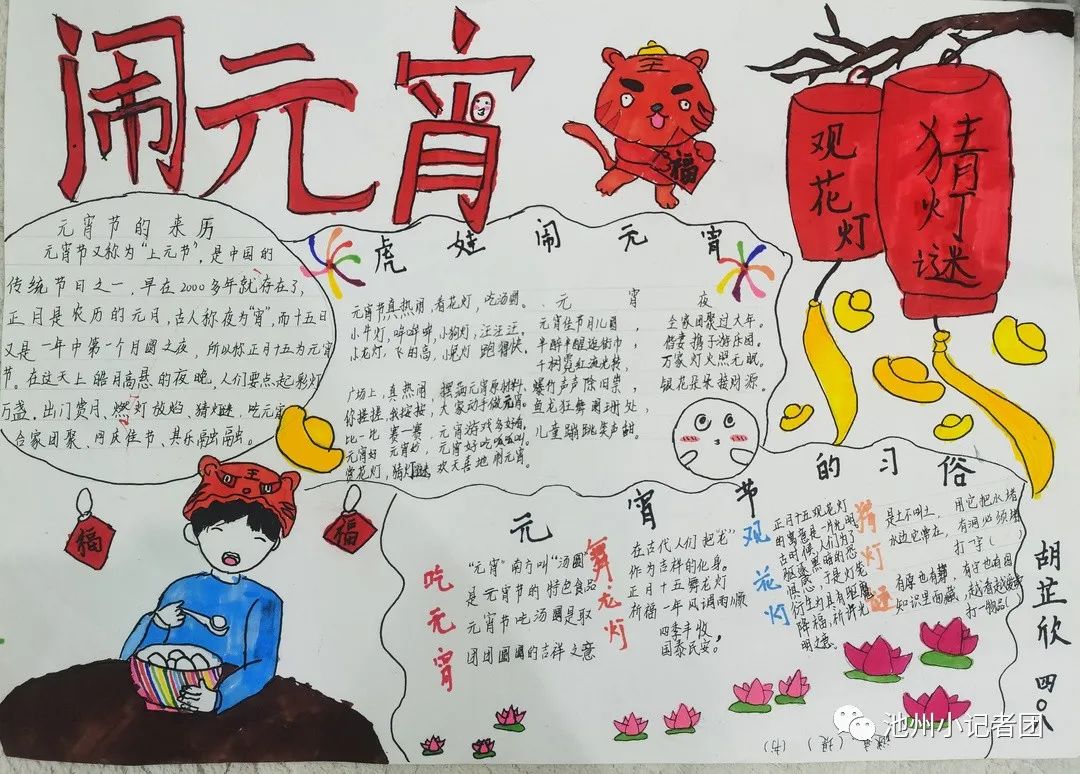 闹元宵
福
观花灯
猜灯谜
元宵节的来历
元宵节又称为“上元节”，是中国的
传统节日之一，早在2000多年就存在了，
正月是农历的元月，古人称夜为“宵”，而十五日
又是一年中第一个月圆之夜，所以称正月十五为元宵
节。在这天上皓月高悬的夜晚，人们要点起彩灯
万盏，出门赏月、燃灯放焰、猜灯谜、吃元宵
合家团聚、同庆佳节、其乐融融。
虎娃闹元宵
元宵节真热闹，看花灯，吃汤圆。
小牛灯，哞哞哞，小狗灯，汪汪汪。
小龙灯，飞的高，小鼠灯，跑得快。
广场上，真热闹，
你挂挂，我挂挂，大家动手做元宵。
比一比，赛一赛，元宵游戏多好看。
元宵好，元宵好，元宵好吃
赏花灯，猜灯谜，欢天喜地闹元宵。
元宵夜
元宵佳节月儿圆，全家团聚过大年。
半醉半醒逛街巾，借妻携子游乐园。
千树霓虹流光转，万家灯火照无眠。
爆竹声声除旧祟，银花朵朵接财源。
鱼龙狂舞闹珊处，
儿童蹦跳笑声甜。
福
福
元宵节的习俗
吃元宵
“元宵”南方叫“汤圆”
是元宵节的特色食品
元宵节吃汤圆是取
团团圆圆的吉祥之意
舞龙灯
在古代人们把“龙”
作为吉祥的化身。
正月十五舞龙灯
祈福一年风调雨顺
四季丰收
国泰民安。
观花灯
正月十五观花灯
的寓意是一片光明
古时候，人们为了
驱除黑暗的恐
惧感，于是灯笼
衍生为具有驱魔
降福，祈许光
明之意。
猜灯谜
是土不叫土，用它把水堵
水边它常在，有洞必须堵
打一字（ ）
有厚也有薄，有方也有圆
知识里面藏，
打一物品（ ）
胡芷欣
四0八
（书）
池州小记者团